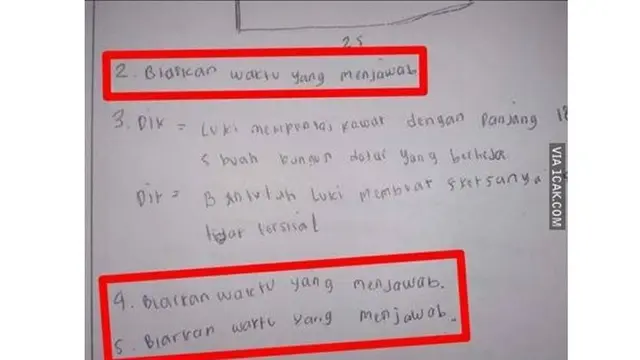 25
2. Biarkan waktu yang menjawab
3. Dik = Luki mempunyai kawat dengan panjang 18
5 buah bangun datar yang berbeda.
Dit = Bantulah Luki membuat sketsanya
tidak tersisa!
4. Biarkan waktu yang menjawab.
5. Biarkan waktu yang menjawab.
VIA 1CAK.COM